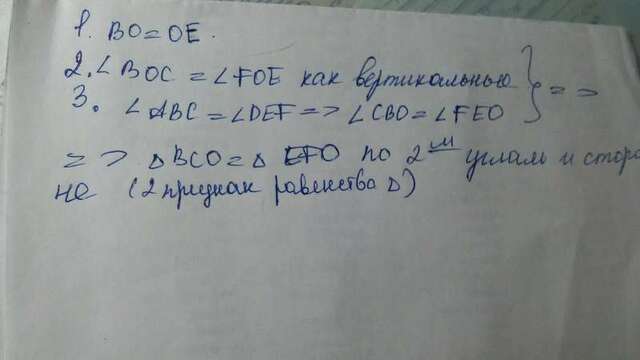 1. BO = OE.
2. ∠ BOC = ∠ FOE как вертикальные } = >
3. ∠ ABC = ∠ DEF = > ∠ CBO = ∠ FEO
= > △ BCO = △ EFO по 2 ᵘᵐ углам и сторо
не (2 признак равенства △)